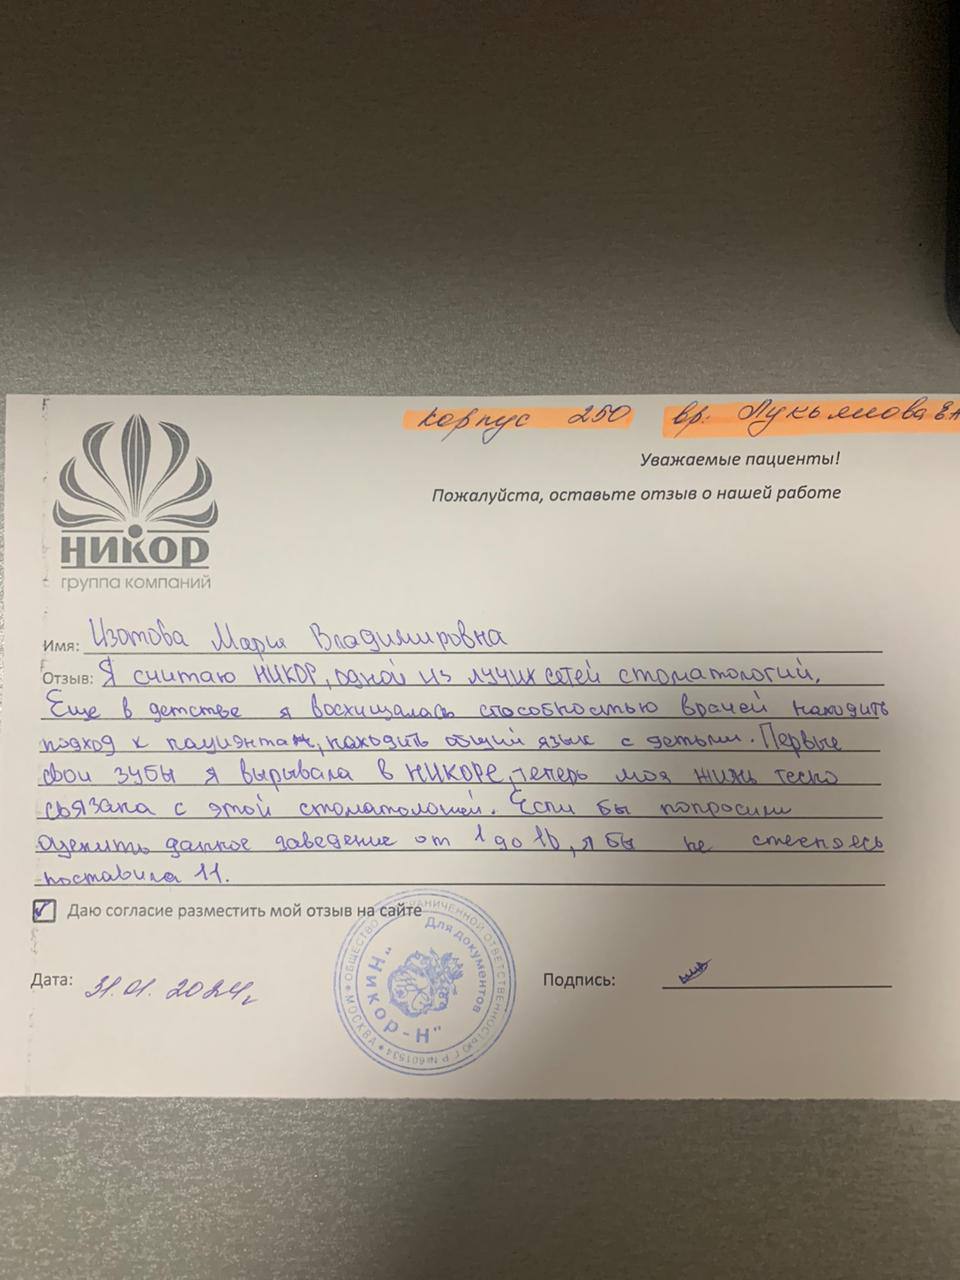 корпус 250 вр. Лукьянова Е.А
Уважаемые пациенты!
Пожалуйста, оставьте отзыв о нашей работе
НИКОР
группа компаний
Имя: Изотова Мария Владимировна
Отзыв: Я считаю НИКОР, одной из лучих сетей стоматологий.
Еще в детстве я восхищалась способностью врачей находить
подход к пациэнтам, находить общий язык с детьми. Первые
свои зубы я вырывала в НИКОРЕ, теперь моя жизь тесно
связана с этой стоматологией. Если бы попросили
оценить данное заведение от 1 до 10, я бы не стесняясь
поставила 11.
Даю согласие разместить мой отзыв на сайте
Дата: 31.01.2024г
Подпись:
МОСКВА * ОБЩЕСТВО С ОГРАНИЧЕННОЙ ОТВЕТСТВЕННОСТЬЮ Г Р №601534
Для документов
"Никор-Н"